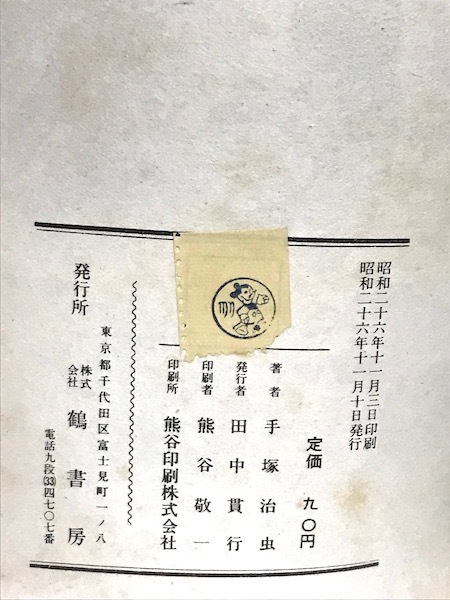 昭和二十六年十一月三日印刷
昭和二十六年十一月十日発行
定価 九〇円
著者 手塚治虫
発行者 田中貫行
印刷者 熊谷敬一
印刷所 熊谷印刷株式会社
東京都千代田区富士見町一ノ八
発行所 株式会社 鶴書房
電話九段(33)四七〇七番